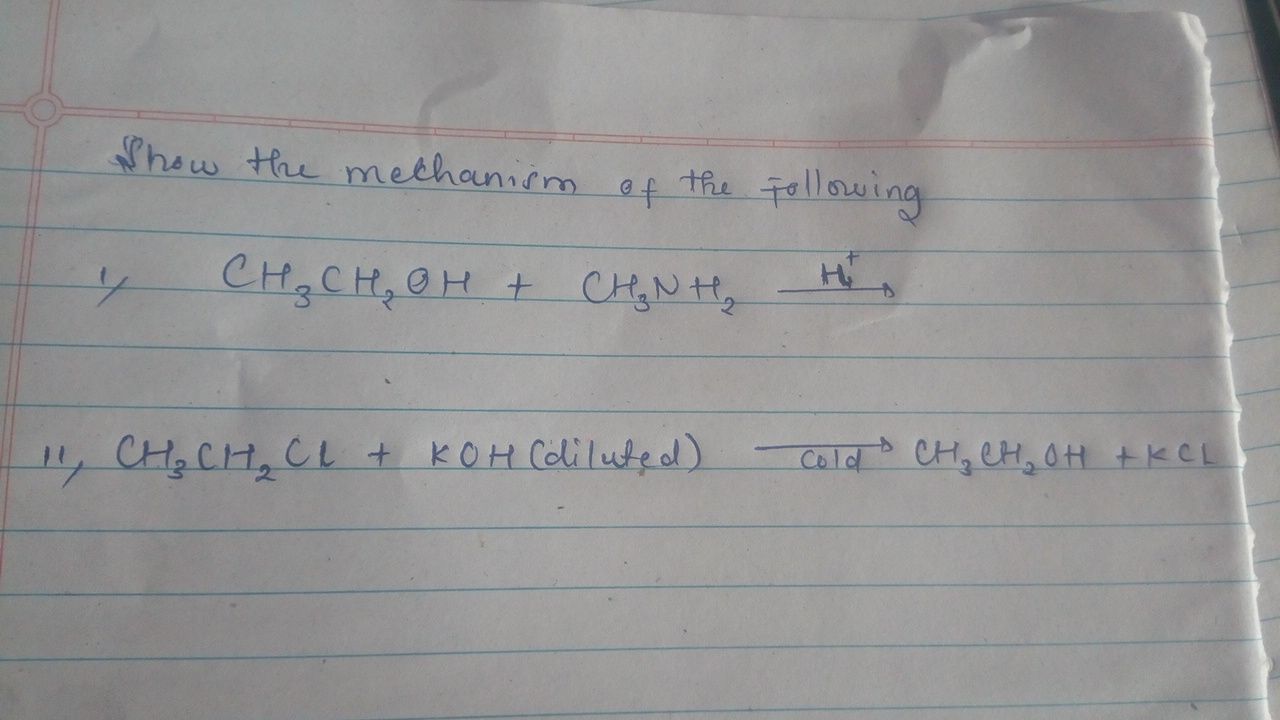 Show the mechanism of the following
i, CH₃CH₂OH + CH₃NH₂ —H⁺→
ii, CH₃CH₂Cl + KOH (diluted) —cold→ CH₃CH₂OH + KCl